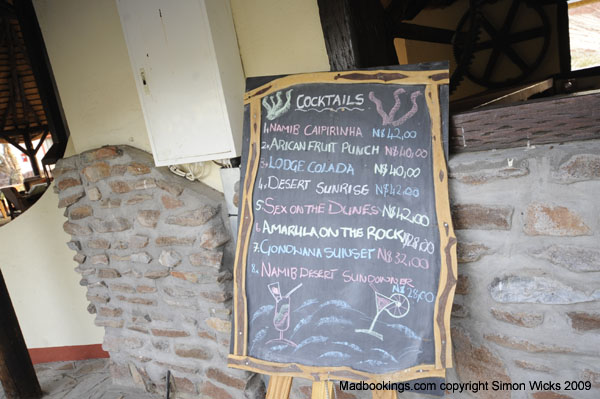 COCKTAILS
1. NAMIB CAIPIRINHA N$42,00
2. ARICAN FRUIT PUNCH N$40,00
3. LODGE COLADA N$40,00
4. DESERT SUNRISE N$42,00
5. SEX ON THE DUNES N$42,00
6. AMARULA ON THE ROCK N$28,00
7. GONDWANA SUNSET N$32,00
8. NAMIB DESERT SUNDOWNER
N$28,00
Madbookings.com copyright Simon Wicks 2009